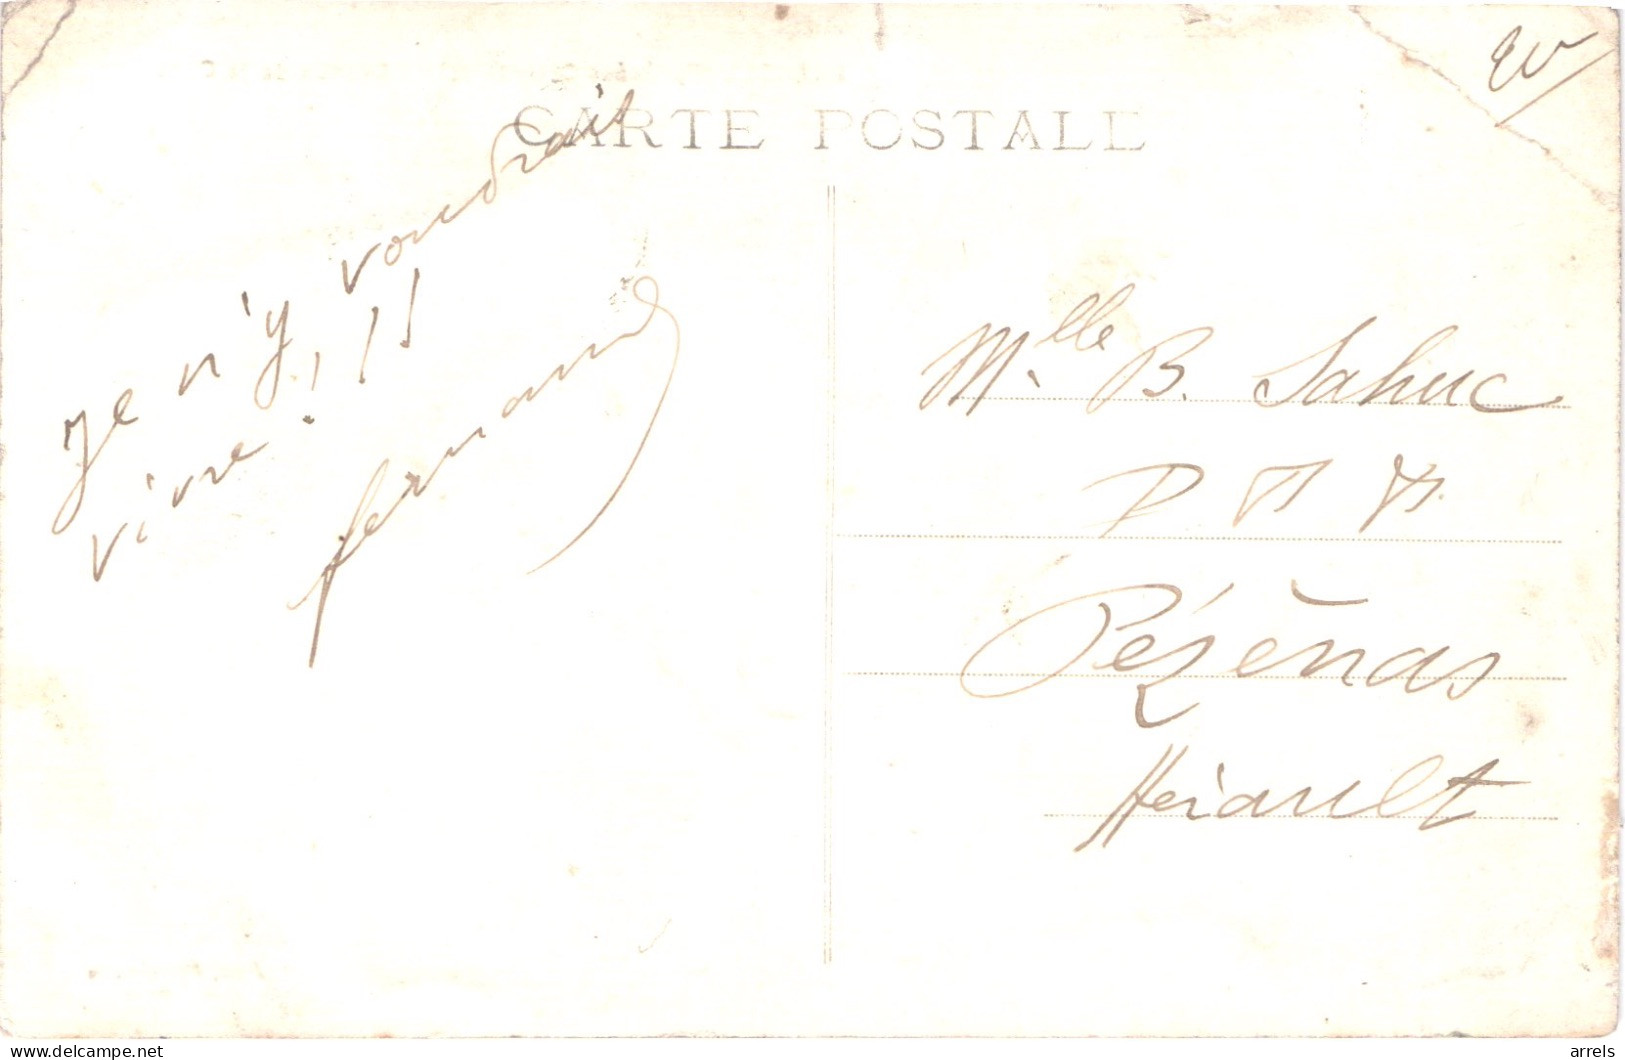 CARTE POSTALE
Je n'y voudrais
vivre ! ! !
fernand
Mlle B. Sahuc
P T T.
Pézénas
Hérault
delcampe.net
arrels